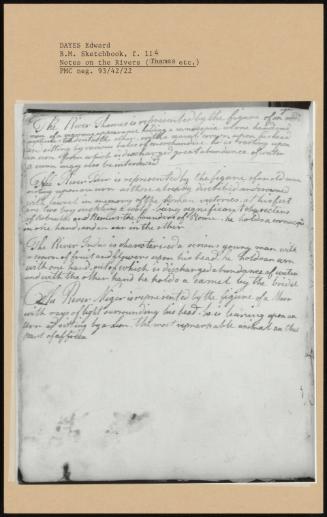 DAYES Edward
B.M. Sketchbook, f. 114
Notes on the Rivers (Thames etc.)
PMC neg. 93/42/22
The River Thames is represented by the figure of an old
man of a vigorous appearance holding a cornucopia in one hand and
in the other. with the naval crown upon his head
sitting by various bales of merchandise. he is resting upon
an urn from which is discharged great abundance of water
a swan may also be introduced
The River Tiber is represented by the figure of an old man
resting upon an urn as those already described and crowned
with laurel in memory of the Roman victories. at his feet
are two boys sucking a wolf being significant characters
of Romulus and Remus the founders of Rome. he holds a cornucopia
in one hand, and an oar in the other
The River Indus is characterised a serious young man with
a crown of fruit and flowers upon his head. he holds an urn
with one hand, out of which is discharged abundance of water
and with the other hand he holds a camel by the bridle
The River Niger is represented by the figure of a Moor
with rays of light surrounding his head. he is leaning upon an
urn and sitting by a Lion. the most remarkable animal in this
part of Africa